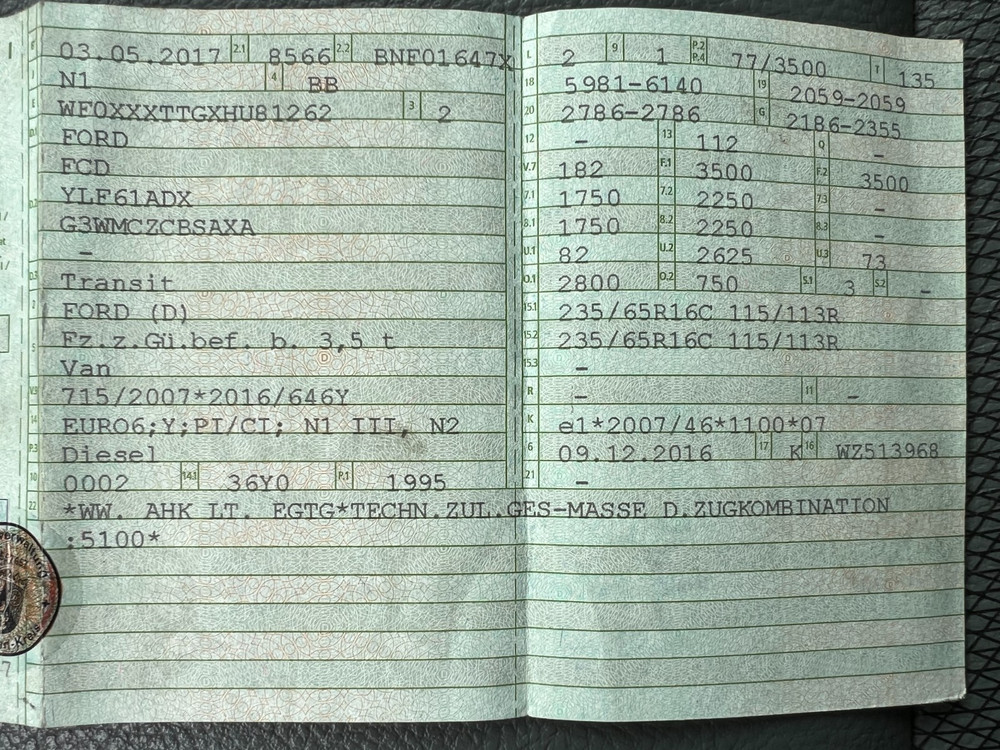 B 03.05.2017 2.1 8566 2.2 BNF01647X
J N1 4 BB
E WF0XXXTTGXHU81262 3 2
D.1 FORD
FCD
D.2 YLF61ADX
G3WMCZCBSAXA
–
D.3 Transit
2 FORD (D)
5 Fz.z.Gü.bef. b. 3,5 t
Van
V.9 715/2007*2016/646Y
14 EURO6;Y;PI/CI; N1 III, N2
P.3 Diesel
10 0002 14.1 36Y0 P.1 1995
L 2 9 1 P.2 P.4 77/3500 T 135
18 5981-6140 19 2059-2059
20 2786-2786 G 2186-2355
12 – 13 112 Q –
V.7 182 F.1 3500 F.2 3500
7.1 1750 7.2 2250 7.3 –
8.1 1750 8.2 2250 8.3 –
U.1 82 U.2 2625 U.3 73
O.1 2800 O.2 750 S.1 3 S.2 –
15.1 235/65R16C 115/113R
15.2 235/65R16C 115/113R
15.3 –
R – 11 –
K e1*2007/46*1100*07
6 09.12.2016 17 K 16 WZ513968
21 –
22 *WW. AHK LT. EGTG*TECHN.ZUL.GES-MASSE D.ZUGKOMBINATION
:5100*